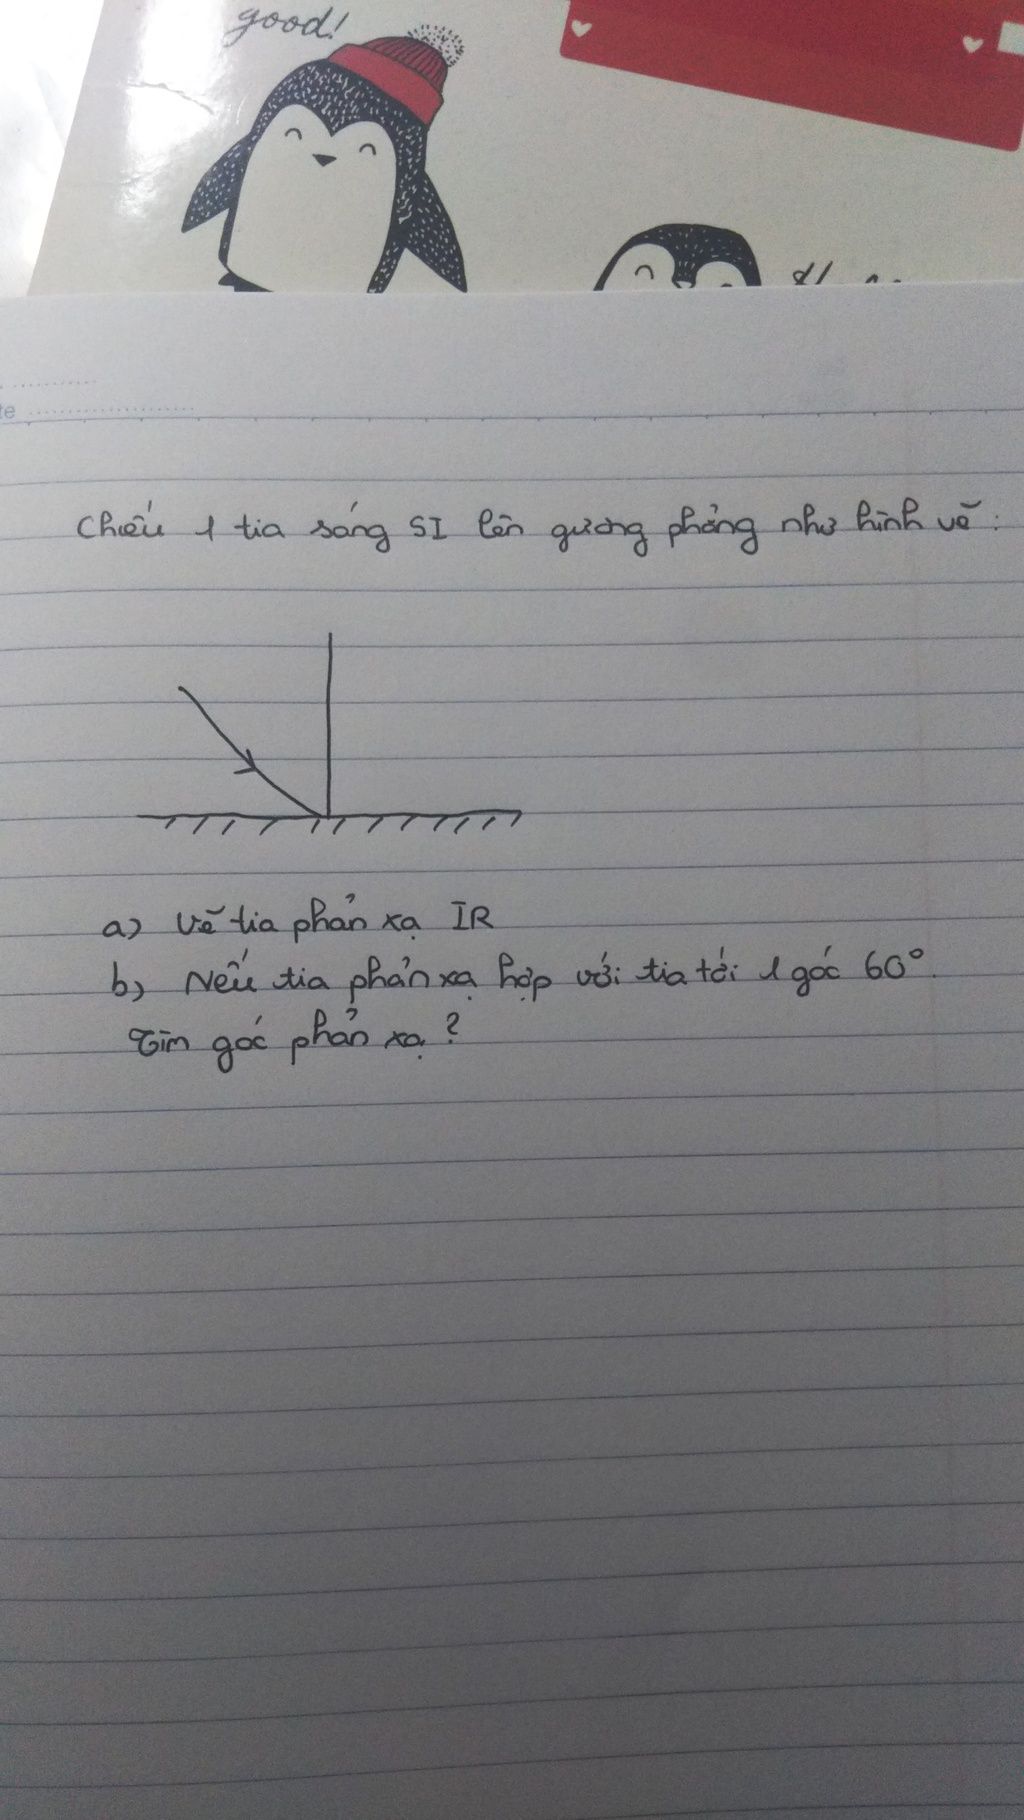 good!
te
Chiếu 1 tia sáng SI lên gương phẳng như hình vẽ:
a) Vẽ tia phản xạ IR
b) Nếu tia phản xạ hợp với tia tới 1 góc 60°.
Tìm góc phản xạ?